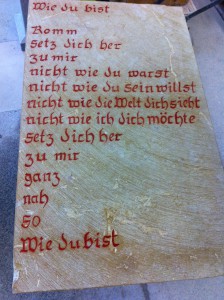 Wie du bist
Komm
setz dich her
zu mir
nicht wie du warst
nicht wie du sein willst
nicht wie die Welt dich sieht
nicht wie ich dich möchte
setz dich her
zu mir
ganz
nah
so
Wie du bist